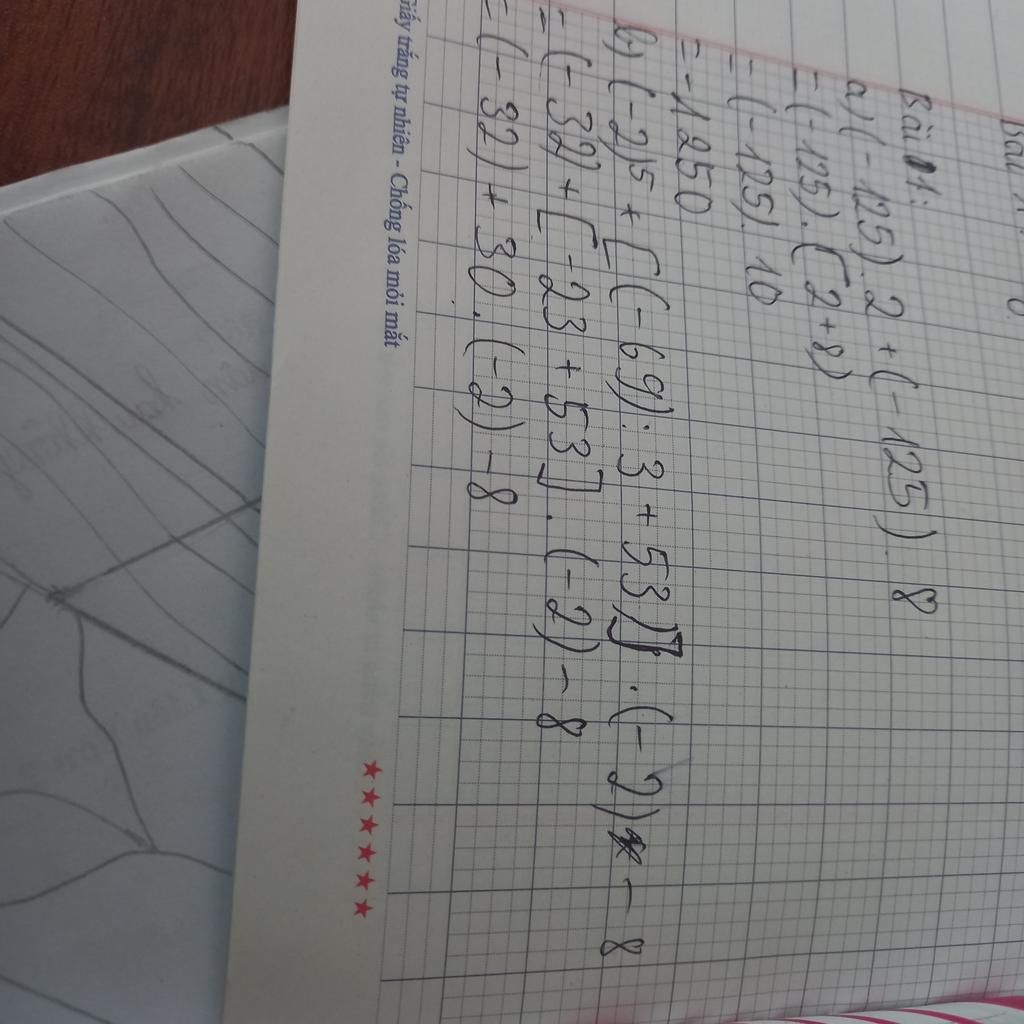 Bài 1:
a) (-125).2 + (-125). 8
= (-125).(2+8)
= (-125). 10
= -1250
b) (-2)⁵ + [(-69):3 + 53)] . (-2) - 8
= (-32) + [-23 + 53] . (-2) - 8
= (-32) + 30 . (-2) - 8
giấy trắng tự nhiên - Chống lóa mỏi mắt